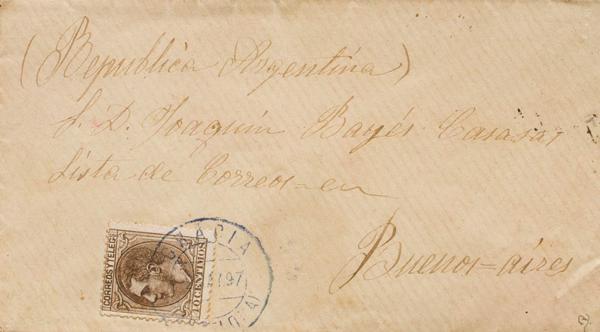 (Republica Argentina)
S. D. Joaquín Bayés Casasas
Lista de Correos=en
Buenos=aires
CORREOS Y TELEGS
10 CENTIMOS
GRACIA
97